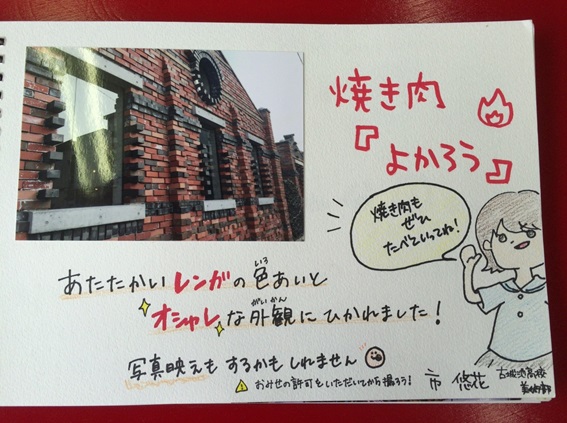 焼き肉
『よかろう』
焼き肉も
ぜひ
たべていってね!
あたたかいレンガの色あいと
いろ
オシャレな外観にひかれました!
がいかん
写真映えもするかもしれません
おみせの許可をいただいてから撮ろう!
市 悠花
古城池高校
美術部